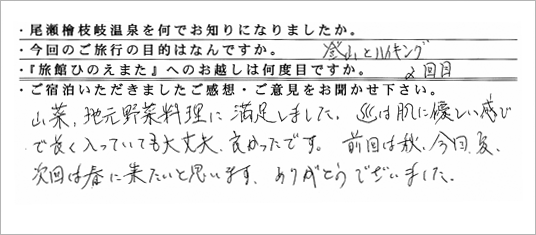 ・尾瀬檜枝岐温泉を何でお知りになりましたか。
・今回のご旅行の目的はなんですか。 登山とハイキング
・『旅館ひのえまた』へのお越しは何度目ですか。 2回目
・ご宿泊いただきましたご感想・ご意見をお聞かせ下さい。
山菜、地元野菜料理に満足しました。♨は肌に優しい感じ
で長く入っていても大丈夫、良かったです。前回は秋、今回夏、
次回は春に来たいと思います、ありがとうございました。